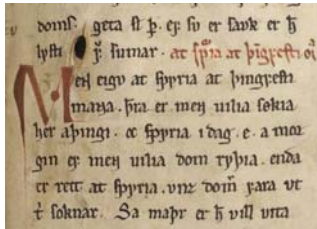 doms. geta sl þ. eꝼ sv er savk er h̅
lysti i ꝼ. sumar. at spͬia at þīgꝼesti o᷎
Men eigv at spyria at þingꝼesti
maɴa. þͬa er men vilia søkia
her aþingi. oc spyria i dag. e. a mor
gin eꝼ men vilia dom ryþia. enda
er rett at spyria. vnz dom̅ ꝼara vt
t̅ soknar. Sa maþr er h̅ vill vita